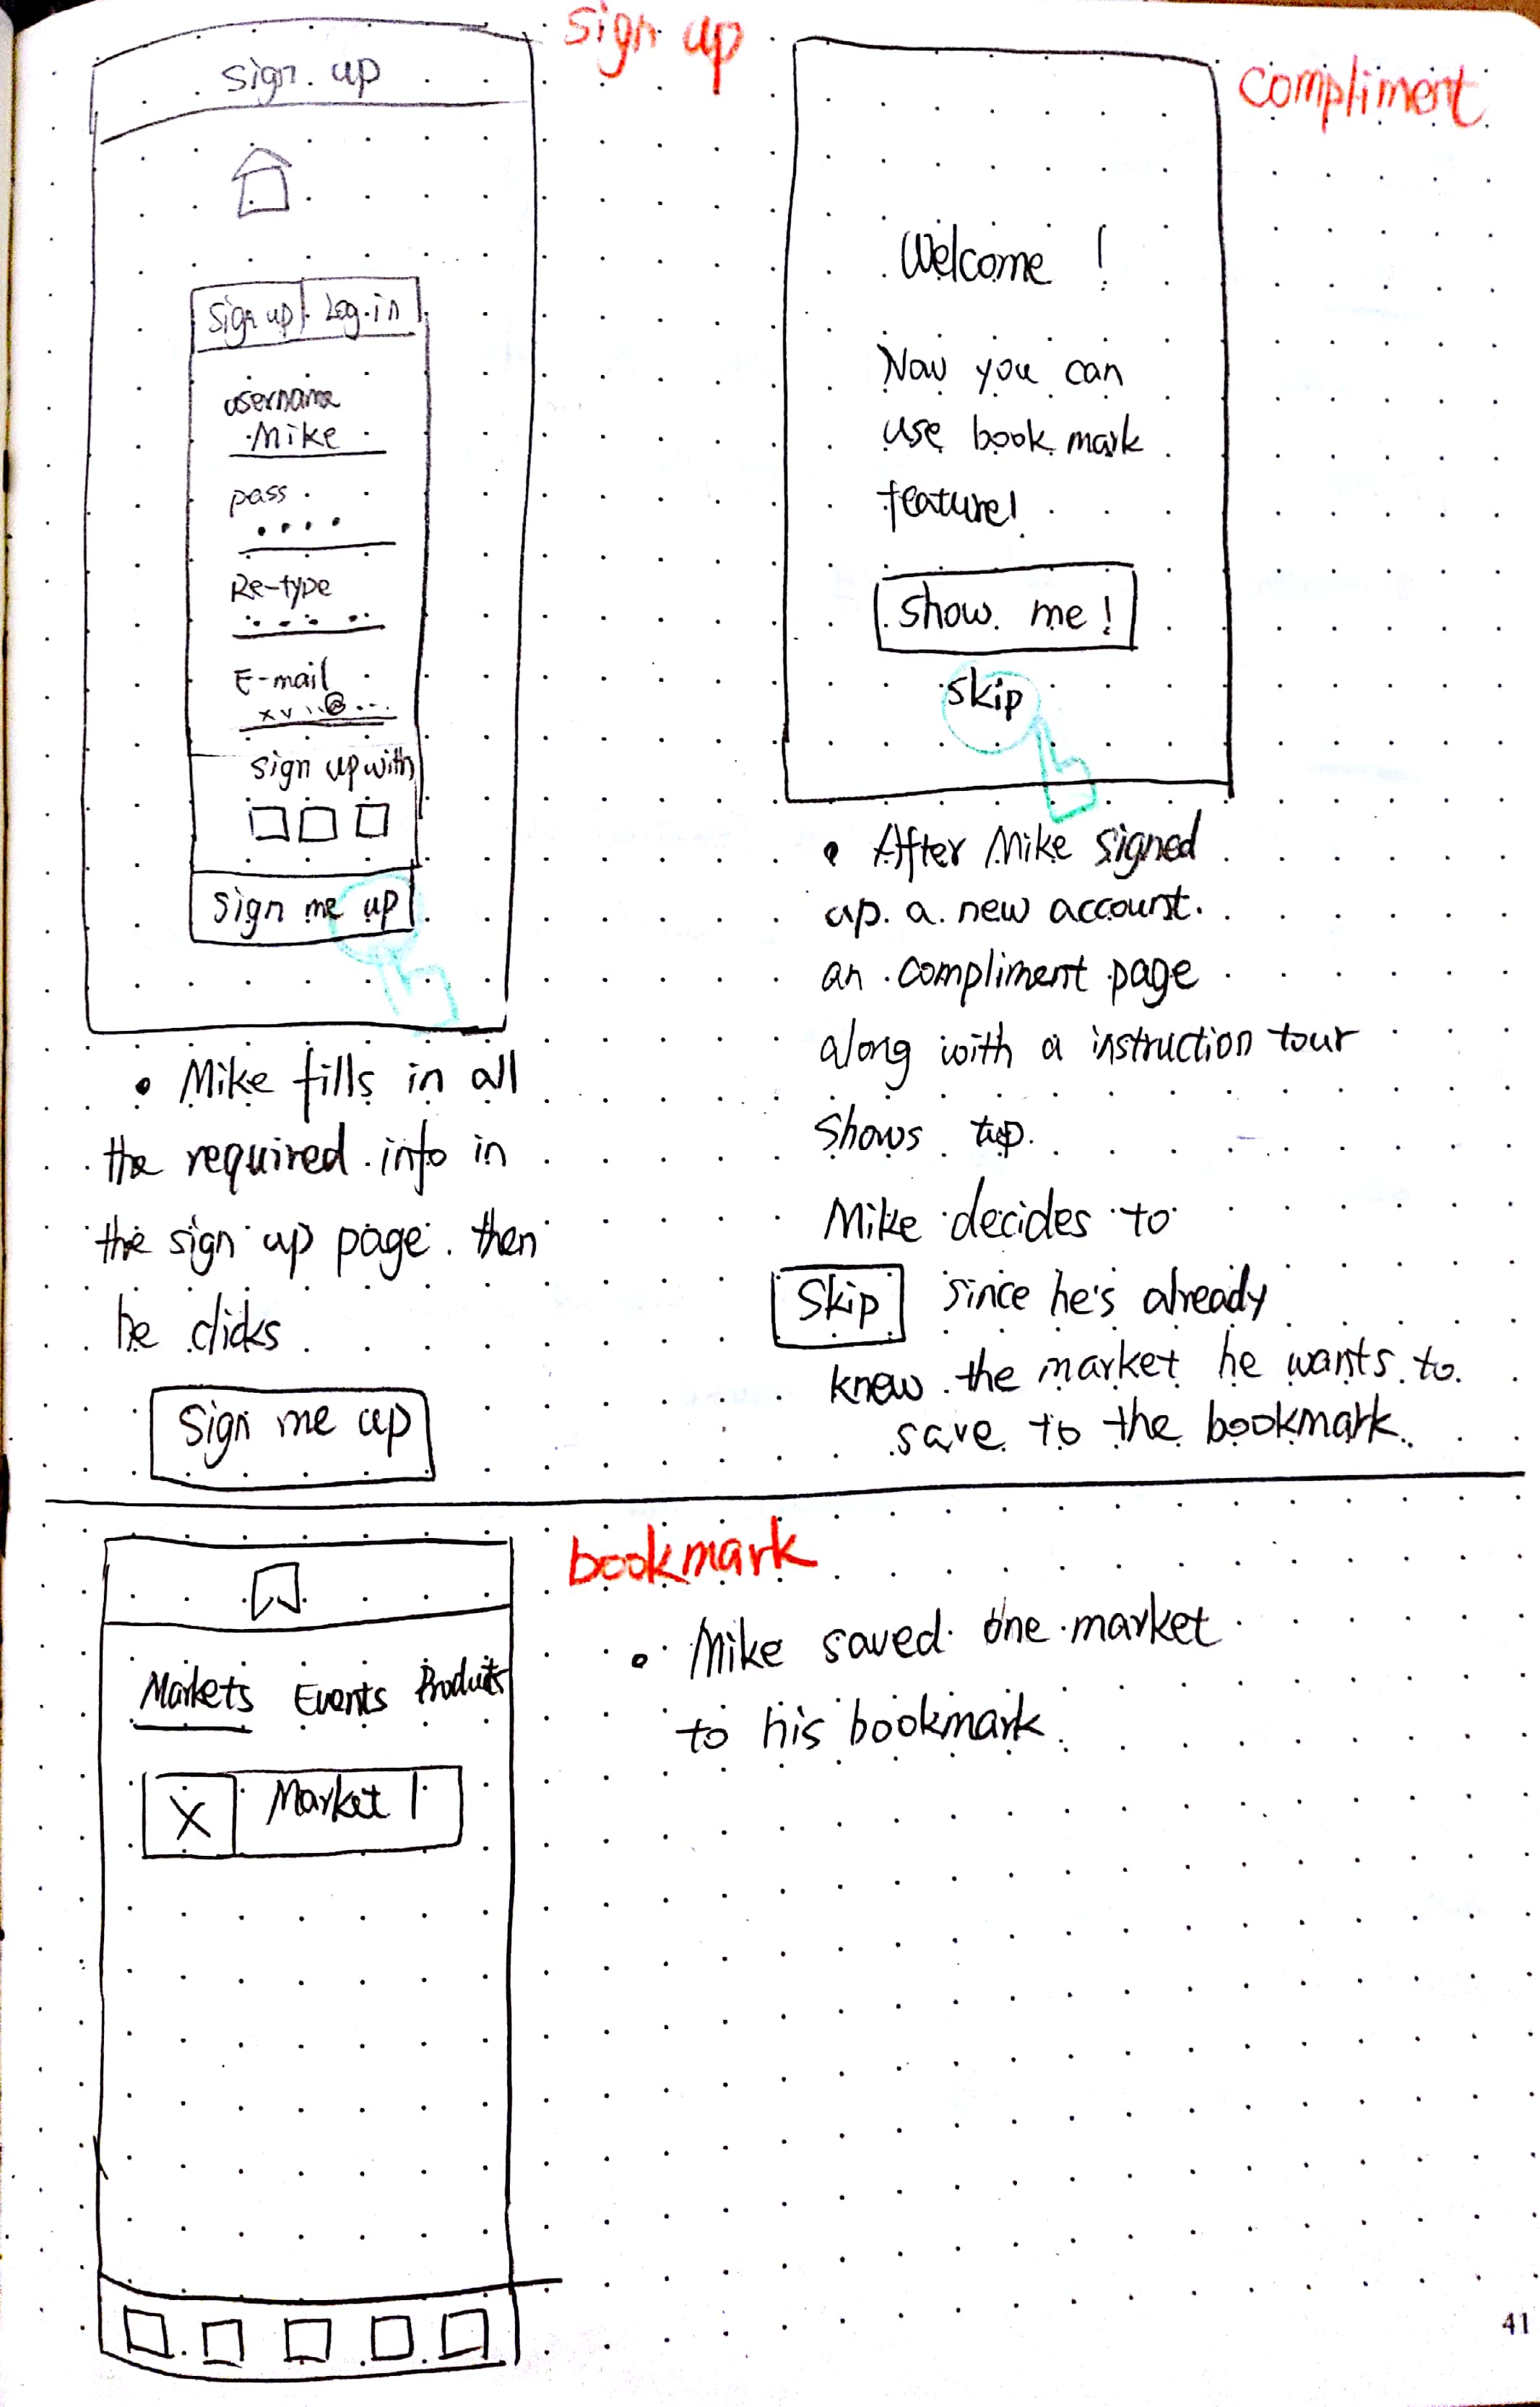 sign up
sign up
Sign up Log in
username
Mike
pass
Re-type
E-mail
sign up with
Sign me up
• Mike fills in all
the required info in
the sign up page. then
he clicks
Sign me up
compliment
Welcome !
Now you can
use book mark
feature!
Show me !
skip
• After Mike signed
up a new account.
an compliment page
along with a instruction tour
shows up.
Mike decides to
Skip since he's already
knew the market he wants to
save to the bookmark.
bookmark
Markets Events Products
X Market 1
• Mike saved one market
to his bookmark.
41